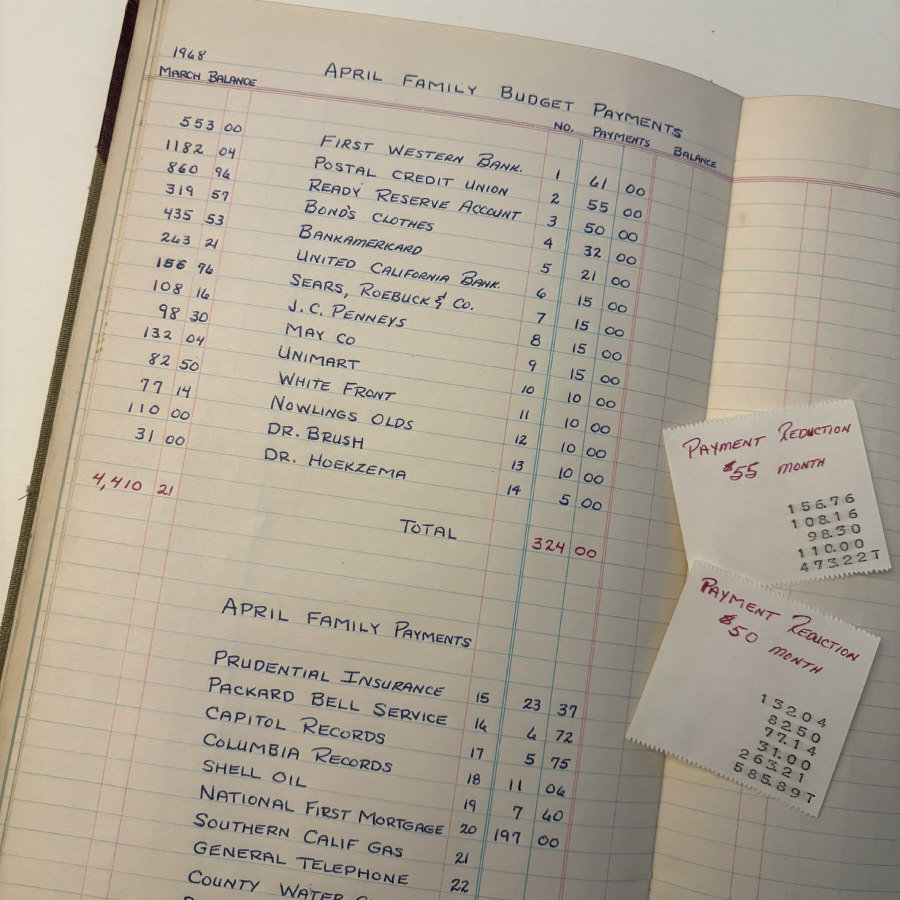 1968
APRIL FAMILY BUDGET PAYMENTS
MARCH BALANCE NO. PAYMENTS BALANCE
553 00 FIRST WESTERN BANK. 1 61 00
1182 04 POSTAL CREDIT UNION 2 55 00
860 96 READY RESERVE ACCOUNT 3 50 00
319 57 BOND'S CLOTHES 4 32 00
435 53 BANKAMERICARD 5 21 00
263 21 UNITED CALIFORNIA BANK. 6 15 00
156 76 SEARS, ROEBUCK & CO. 7 15 00
108 16 J.C. PENNEYS 8 15 00
98 30 MAY CO 9 15 00
132 04 UNIMART 10 10 00
82 50 WHITE FRONT 11 10 00
77 14 NOWLINGS OLDS 12 10 00
110 00 DR. BRUSH 13 10 00
31 00 DR. HOEKZEMA 14 5 00
4,410 21 TOTAL 324 00
APRIL FAMILY PAYMENTS
PRUDENTIAL INSURANCE 15 23 37
PACKARD BELL SERVICE 16 6 72
CAPITOL RECORDS 17 5 75
COLUMBIA RECORDS 18 11 06
SHELL OIL 19 7 60
NATIONAL FIRST MORTGAGE 20 197 00
SOUTHERN CALIF GAS 21
GENERAL TELEPHONE 22
COUNTY WATER
PAYMENT REDUCTION
$55 MONTH
156.76
108.16
98.30
110.00
473.22T
PAYMENT REDUCTION
$50 MONTH
13204
8250
77.14
31.00
263.21
585.89T